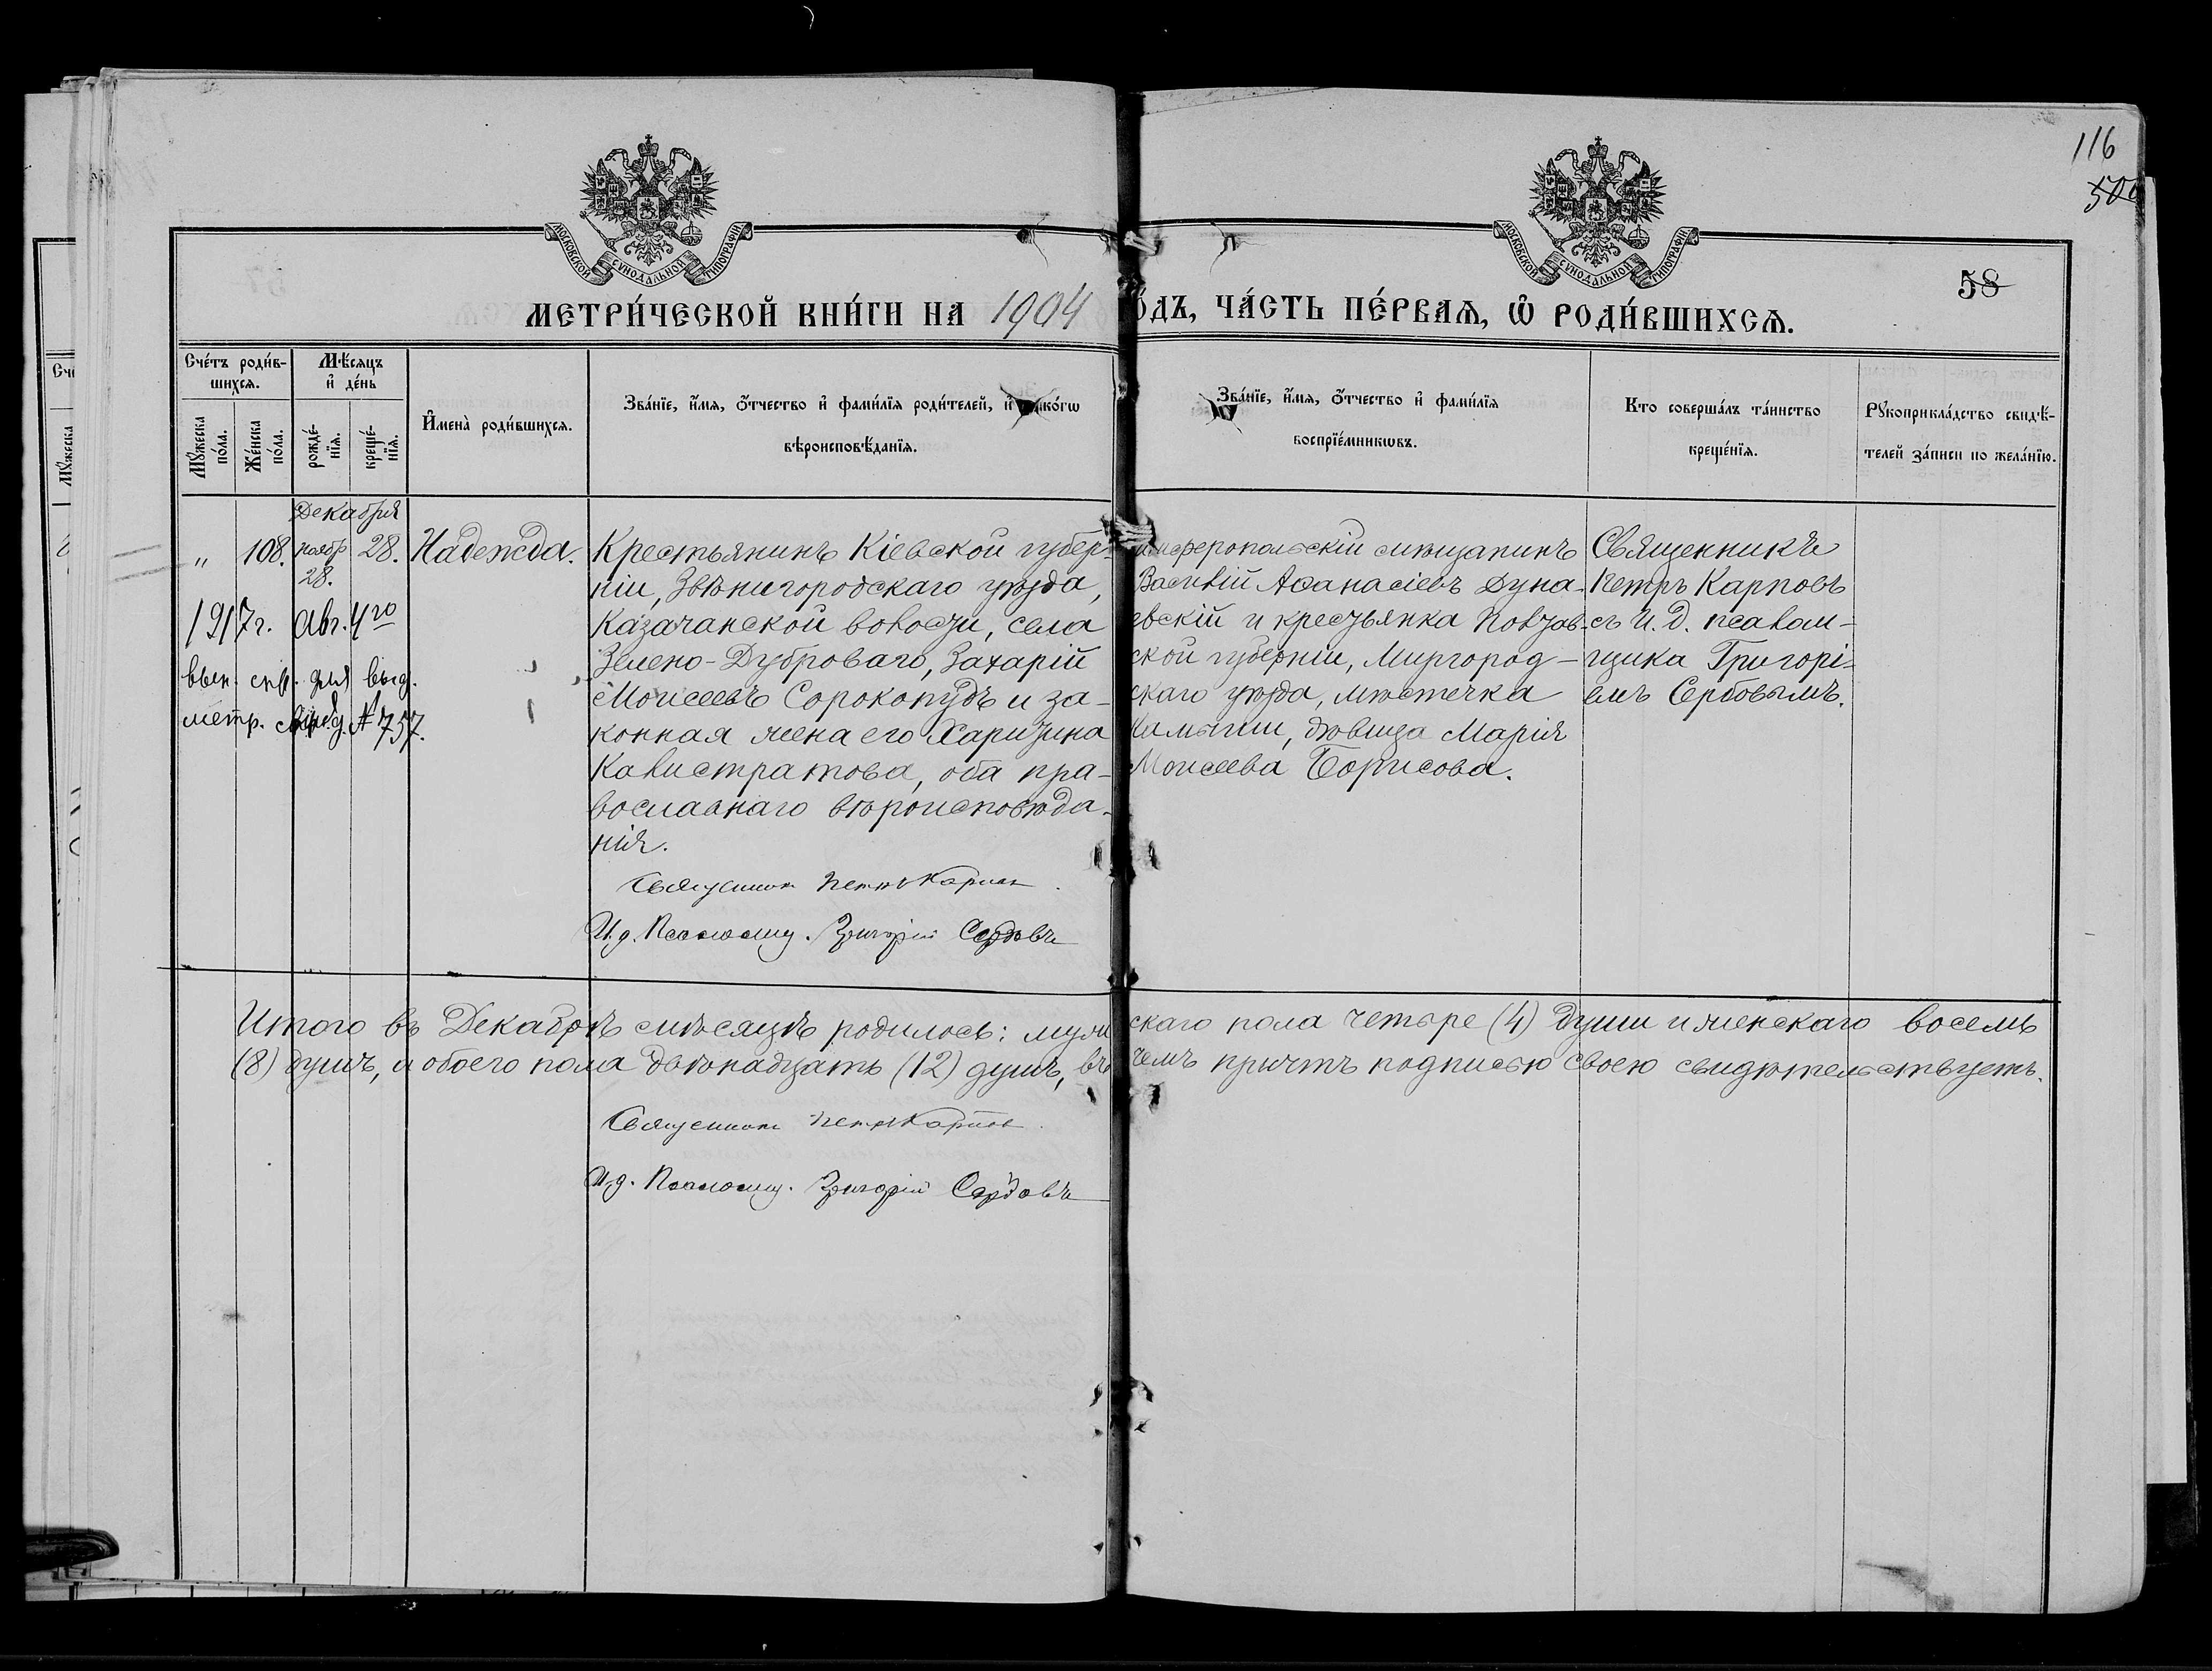 116
58
МОСКОВСКОЙ СѴНОДАЛЬНОЙ ТИПОГРАФІИ
МОСКОВСКОЙ СѴНОДАЛЬНОЙ ТИПОГРАФІИ
МЕТРИ́ЧЕСКОЙ КНИ́ГИ НА 1904 ѺДЪ, ЧА́СТЬ ПЕ́РВАѦ, Ѿ РОДИ́ВШИХСѦ.
Сче́тъ роди́в-
шихсѧ.
Мꙋ́жеска по́ла.
Же́нска по́ла.
Мѣ́сѧцъ
и҆ де́нь
рожде́-нїѧ.
креще́-нїѧ.
И҆мена̀ роди́вшихсѧ.
Зва́нїе, и҆́мѧ, ѻ҆́тчество и҆ фами́лїѧ роди́телей, и҆ како́гѡ
вѣроисповѣ́данїѧ.
Зва́нїе, и҆́мѧ, ѻ҆́тчество и҆ фами́лїѧ
воспрїе́мникѡвъ.
Кто соверша́лъ та́инство
креще́нїѧ.
Рꙋкоприкла́дство свидѣ́-
телей за́писи по жела́нїю.
Декабря
„ 108. Ноябр 28. 28. Надежда.
1917 г. Авг. 4го
вын. спр. для выд.
метр. свид. № 757.
Крестьянинъ Кіевской губер-
ніи, Звѣнигородскаго уѣзда,
Казачанской волости, села
Зелено-Дуброваго, Захарій
Моисеевъ Сорокопудъ и за-
конная жена его Харитина
Калистратова, оба пра-
вославнаго вѣроисповѣда-
нія.
Священник Петръ Карпов.
И. д. Псаломщ. Григорій Сербовъ
имферопольскій мѣщанинъ
Василій Аѳанасіевъ Дуна-
евскій и крестьянка Полтав-
ской губерніи, Миргород-
скаго уѣзда, мѣстечка
Камышни, дѣвица Марія
Моисеева Борисова.
Священникъ
Петръ Карповъ
съ И. Д. псалом-
щика Григорі-
емъ Сербовымъ.
Итого въ Декабрѣ мѣсяцѣ родилось: мужескаго пола четыре (4) души и женскаго восемь
(8) душъ, а обоего пола двѣнадцать (12) душъ, въ чемъ причтъ подписью своею свидѣтельствуетъ.
Священник Петръ Карпов.
И. д. Псаломщ. Григорій Сербовъ